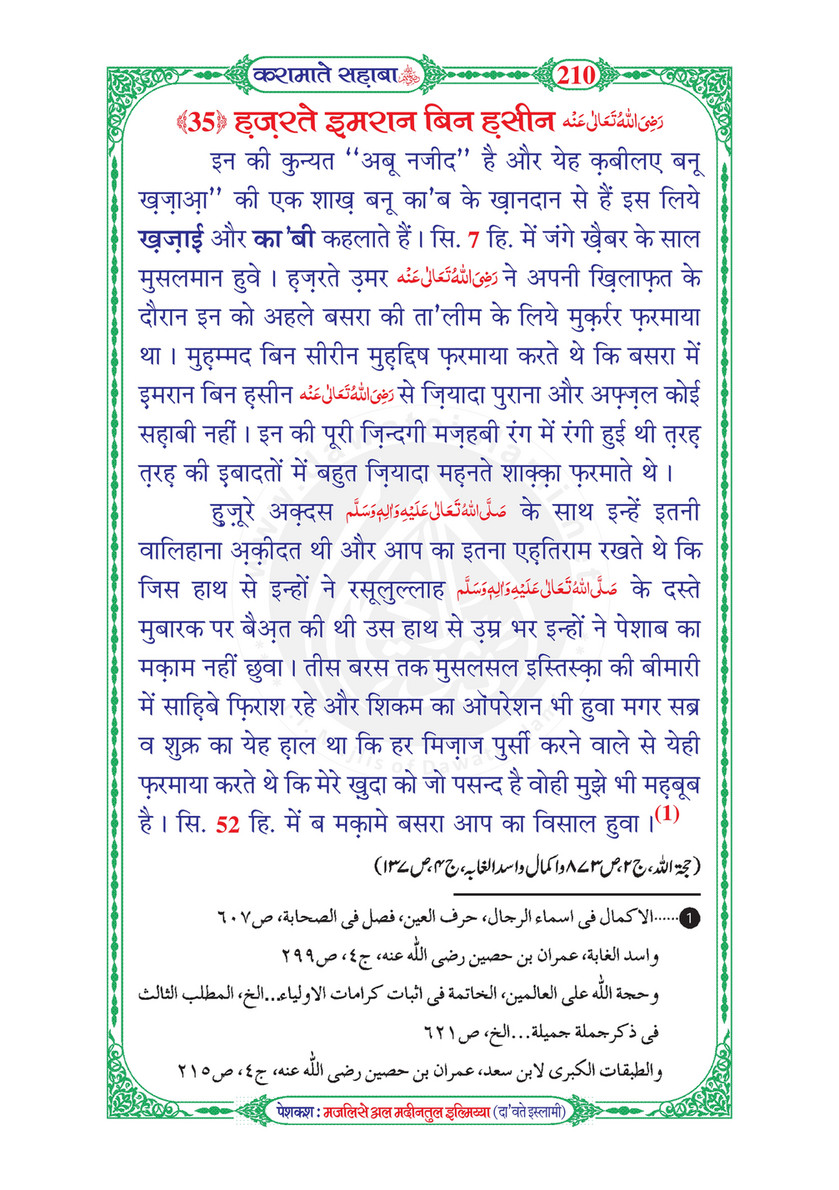 करामाते सह़ाबा
210
﴾35﴿ ह़ज़रते इ़मरान बिन ह़सीन رَضِیَ اللهُ تَعَالٰی عَنْه
इन की कुन्यत ‘‘अबू नजीद’’ है और येह क़बीलए बनू
ख़ज़ाआ़’’ की एक शाख़ बनू का’ब के ख़ानदान से हैं इस लिये
ख़ज़ाई और का’बी कहलाते हैं । सि. 7 हि. में जंगे ख़ैबर के साल
मुसलमान हुवे । ह़ज़रते उ़मर رَضِیَ اللهُ تَعَالٰی عَنْه ने अपनी ख़िलाफ़त के
दौरान इन को अहले बसरा की ता’लीम के लिये मुक़र्रर फ़रमाया
था । मुह़म्मद बिन सीरीन मुह़द्दिष फ़रमाया करते थे कि बसरा में
इ़मरान बिन ह़सीन رَضِیَ اللهُ تَعَالٰی عَنْه से ज़ियादा पुराना और अफ़्ज़ल कोई
सह़ाबी नहीं । इन की पूरी ज़िन्दगी मज़हबी रंग में रंगी हुई थी त़रह़
त़रह़ की इबादतों में बहुत ज़ियादा मह़नते शाक़्क़ा फ़रमाते थे ।
ह़ुज़ूरे अक़्दस صَلَّی اللهُ تَعَالٰی عَلَیْهِ وَاٰلِهٖ وَسَلَّم के साथ इन्हें इतनी
वालिहाना अ़क़ीदत थी और आप का इतना एह़तिराम रखते थे कि
जिस हाथ से इन्हों ने रसूलुल्लाह صَلَّی اللهُ تَعَالٰی عَلَیْهِ وَاٰلِهٖ وَسَلَّم के दस्ते
मुबारक पर बैअ़त की थी उस हाथ से उ़म्र भर इन्हों ने पेशाब का
मक़ाम नहीं छुवा । तीस बरस तक मुसलसल इस्तिस्क़ा की बीमारी
में साह़िबे फ़िराश रहे और शिकम का ऑपरेशन भी हुवा मगर सब्र
व शुक्र का येह ह़ाल था कि हर मिज़ाज पुर्सी करने वाले से येही
फ़रमाया करते थे कि मेरे ख़ुदा को जो पसन्द है वोही मुझे भी मह़बूब
है । सि. 52 हि. में ब मक़ामे बसरा आप का विसाल हुवा ।(1)
(حجۃ اللہ، ج۲،ص۸۷۳ واکمال واسد الغابہ، ج۴،ص۱۳۷)
1......الاکمال فی اسماء الرجال، حرف العین، فصل فی الصحابة، ص٦٠٧
واسد الغابة، عمران بن حصین رضی الله عنه، ج٤، ص٢٩٩
وحجة الله علی العالمین، الخاتمة فی اثبات کرامات الاولیاء...الخ، المطلب الثالث
فی ذکر جملة جمیلة...الخ، ص٦٢١
والطبقات الکبری لابن سعد، عمران بن حصین رضی الله عنه، ج٤، ص٢١٥
पेशकश : मजलिसे अल मदीनतुल इ़ल्मिय्या (दा’वते इस्लामी)